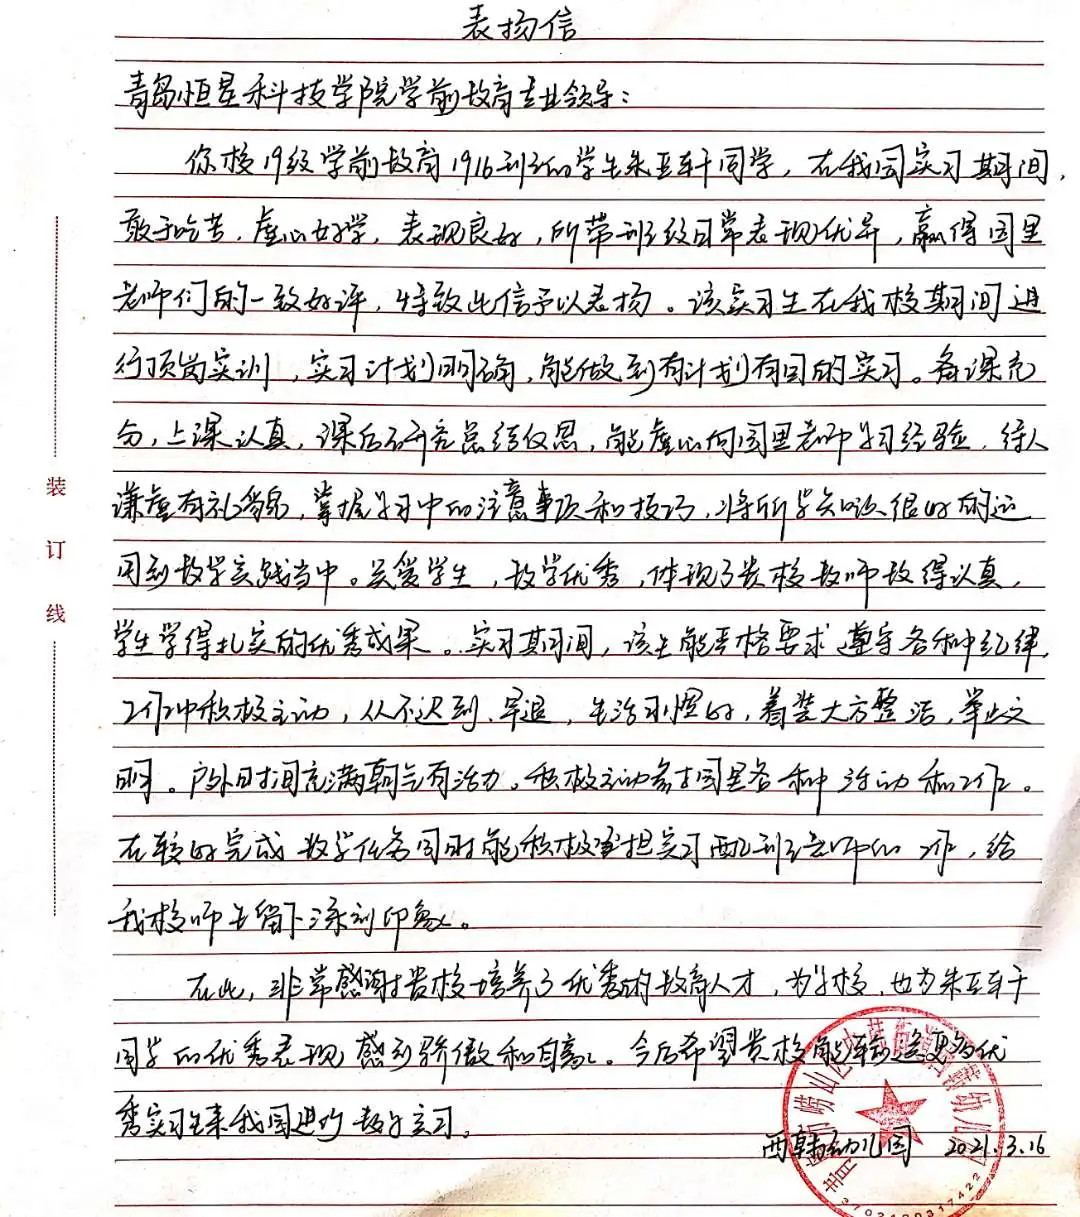 表扬信
青岛恒星科技学院学前教育专业领导：
你校19级学前教育1916班的学生朱亚轩同学，在我园实习期间，
敢于吃苦，虚心好学，表现良好，所带班级日常表现优异，赢得园里
老师们的一致好评，特致此信予以表扬。该实习生在我校期间进
行顶岗实训，实习计划明确，能做到有计划有目的实习。备课充
分，上课认真，课后研究总结反思，能虚心向园里老师学习经验，待人
谦虚有礼貌，掌握学习中的注意事项和技巧，将所学知识很好的运
用到教学实践当中。关爱学生，教学优秀，体现了贵校教师教得认真，
学生学得扎实的优秀成果。实习期间，该生能严格要求遵守各种纪律，
工作中积极主动，从不迟到、早退，生活习惯好，着装大方整洁，举止文
明。户外时间充满朝气有活力。积极主动参与园里各种活动和工作。
在较好完成教学任务同时能积极承担实习配班老师的工作，给
我校师生留下深刻印象。
在此，非常感谢贵校培养了优秀的教育人才，为学校，也为朱亚轩
同学的优秀表现感到骄傲和自豪。今后希望贵校能输送更多优
秀实习生来我园进行教学实习。
西韩幼儿园 2021.3.16
装
订
线